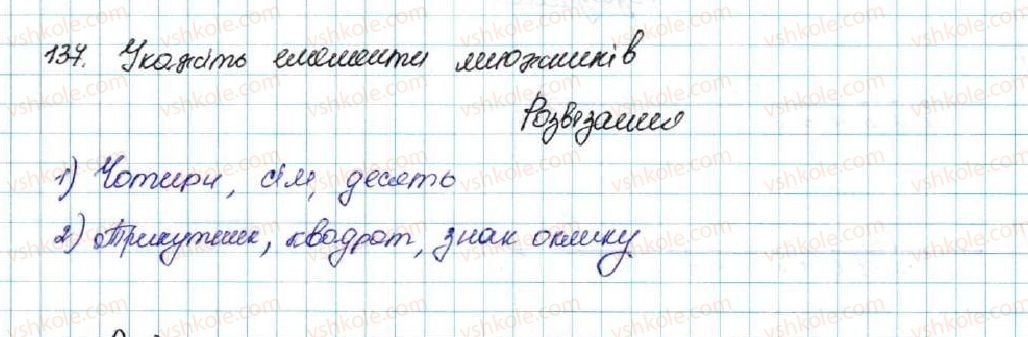 137. Укажіть елементи множників
Розвязання
1) Чотири, сім, десять
2) Трикутник, квадрат, знак оклику